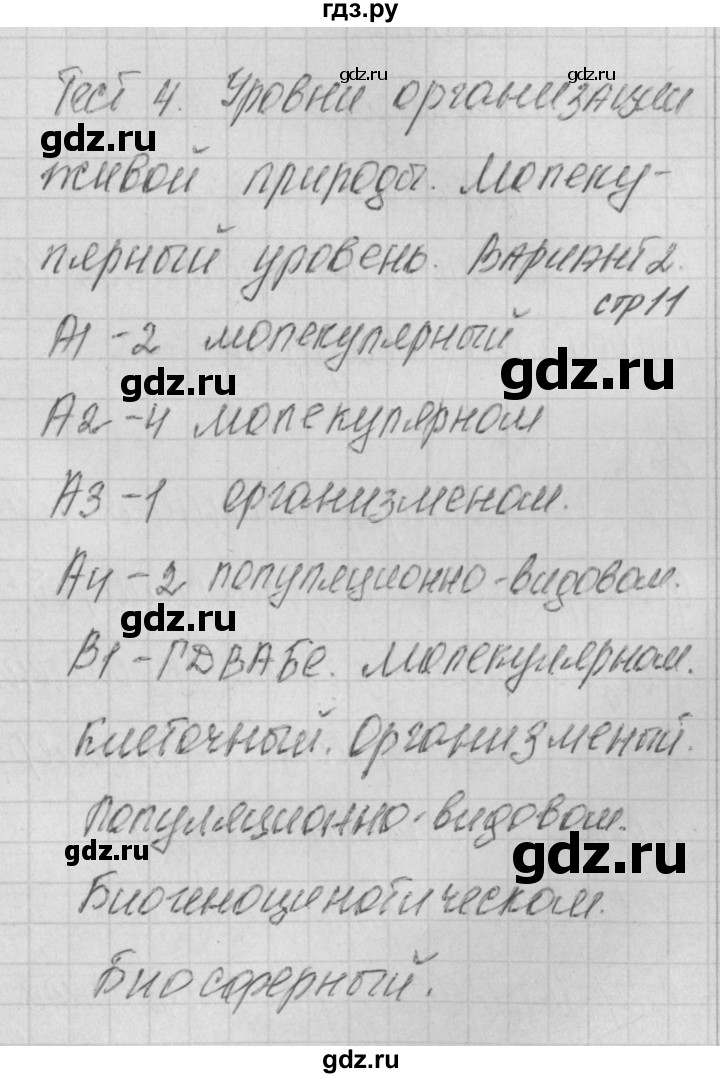 гдз.ру
gdz.ru gdz.ru
Тест 4. Уровни организации
gdz.ru
живой природы. Молеку-
gdz.ru
лярный уровень. Вариант 2.
стр 11
А1 - 2 молекулярный
gdz.ru gdz.ru
А2 - 4 молекулярном
А3 - 1 организменом.
gdz.ru
А4 - 2 популяционно-видовом.
gdz.ru
В1 - ГДВАБЕ. Молекулярном.
gdz.ru
Клеточный. Организменый.
Популяционно-видовом.
gdz.ru gdz.ru
Биогеноценотическом.
gdz.ru
Биосферный.
gdz.ru